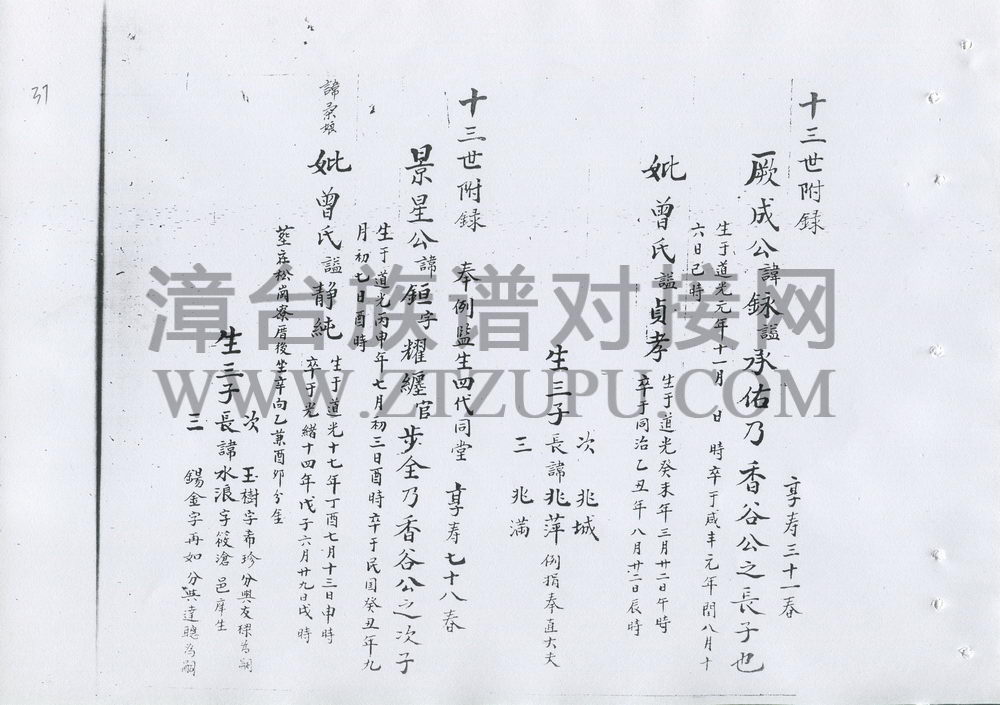 十三世附录
享寿三十一春
厥成公諱錄諡承佑乃香谷公之長子也
生于道光元年十一月 日 時卒于咸丰元年閏八月十
六日己時
妣曾氏諡貞孝
生于道光癸未年三月廿二日午時
卒于同治乙丑年八月廿二日辰時
次 兆城
生三子長諱兆萍例捐奉直大夫
三 兆滿
十三世附録 奉例監生四代同堂 享寿七十八春
景星公諱鉅字耀纏官步全乃香谷公之次子
生于道光丙申年七月初三日酉時卒于民国癸丑年九
月初七日酉時
諱 娘
妣曾氏諡静純
生于道光十七年丁酉七月十三日申時
卒于光緒十四年戊子六月廿九日戌時
茔在松崗寮厝後坐辛向乙兼酉卯分金
次 玉樹字希珍分與友 為嗣
生三子長諱水浪字筱滄邑庠生
三 錫金字再如分與達聰為嗣
37
漳台族谱对接网
WWW.ZTZUPU.COM